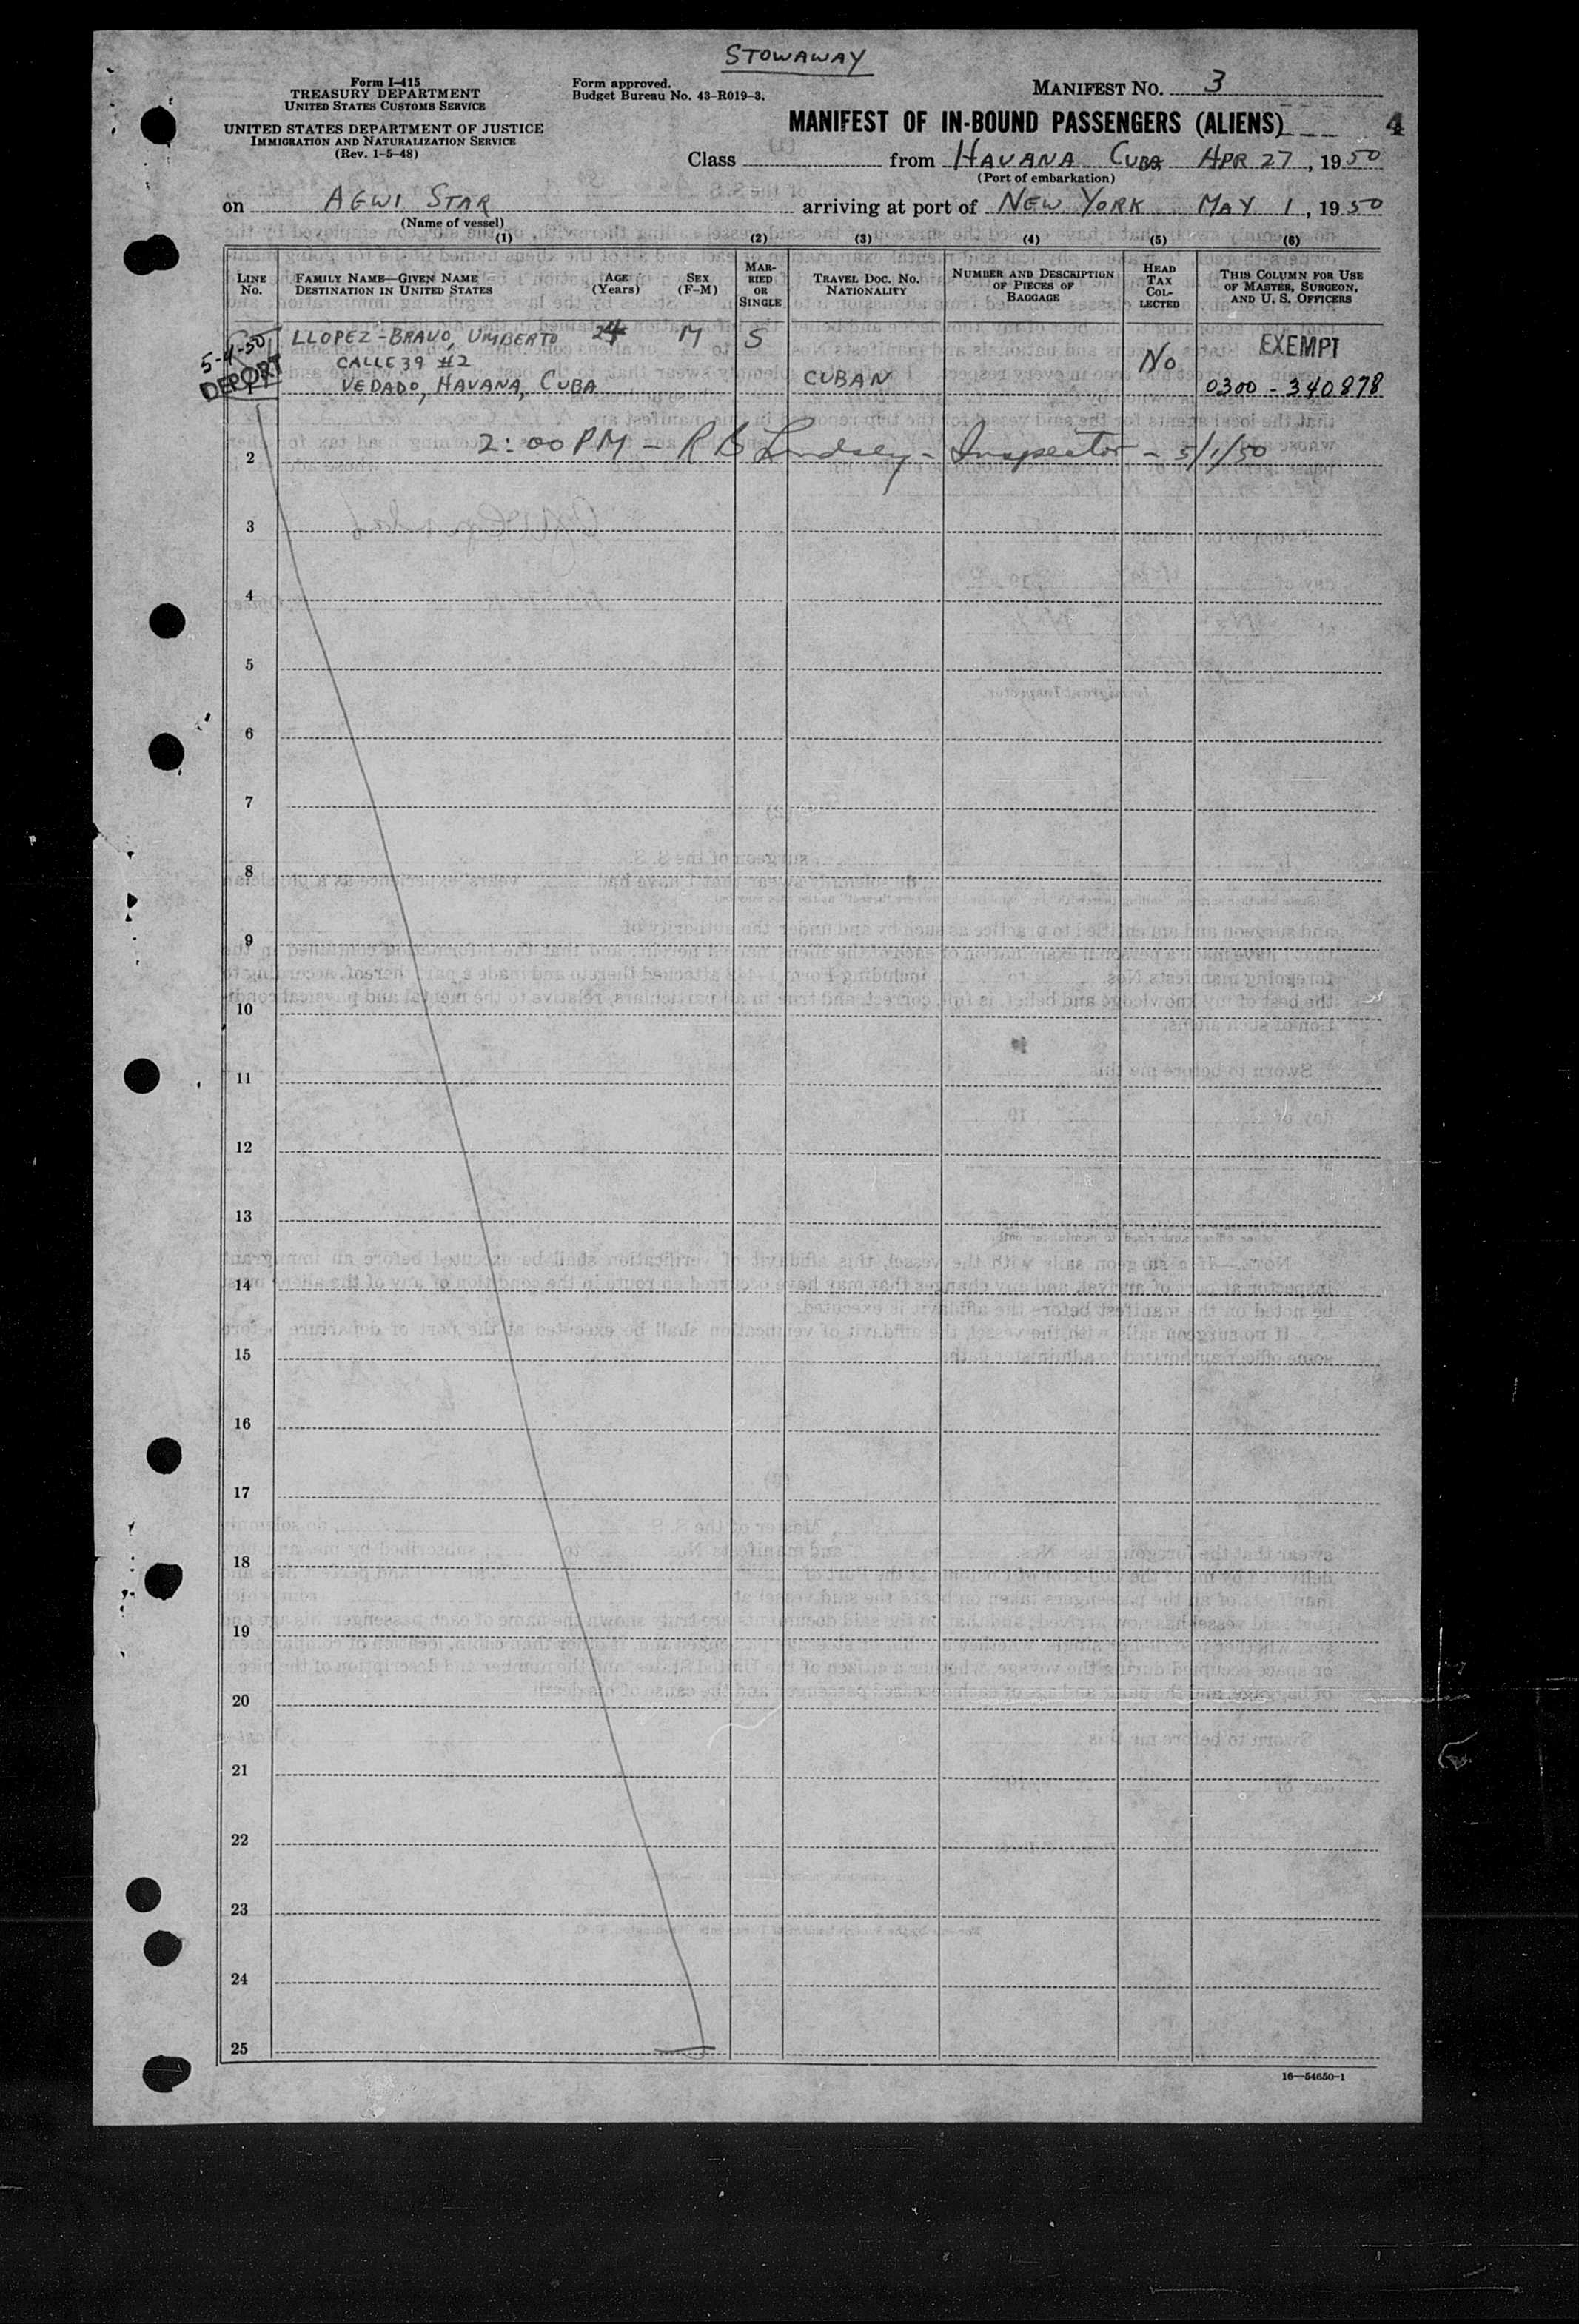 STOWAWAY
Form I-415
TREASURY DEPARTMENT
UNITED STATES CUSTOMS SERVICE
UNITED STATES DEPARTMENT OF JUSTICE
IMMIGRATION AND NATURALIZATION SERVICE
(Rev. 1-5-48)
Form approved.
Budget Bureau No. 43-R019-3.
MANIFEST NO. 3
MANIFEST OF IN-BOUND PASSENGERS (ALIENS) 4
Class from HAVANA CUBA APR 27, 1950
(Port of embarkation)
on AGWI STAR arriving at port of NEW YORK MAY 1, 1950
(Name of vessel)
(1) (2) (3) (4) (5) (6)
LINE No.
FAMILY NAME—GIVEN NAME
DESTINATION IN UNITED STATES
AGE (Years)
SEX (F-M)
MARRIED OR SINGLE
TRAVEL DOC. NO.
NATIONALITY
NUMBER AND DESCRIPTION OF PIECES OF BAGGAGE
HEAD TAX COLLECTED
THIS COLUMN FOR USE OF MASTER, SURGEON, AND U. S. OFFICERS
5-4-50
DEPORT
LLOPEZ-BRAVO, UMBERTO 24 M S
CALLE 39 #2
VEDADO, HAVANA, CUBA CUBAN No
EXEMPT
0300 - 340878
2:00 PM - R B Lindsey - Inspector - 5/1/50
2
3
4
5
6
7
8
9
10
11
12
13
14
15
16
17
18
19
20
21
22
23
24
25
16—54650-1